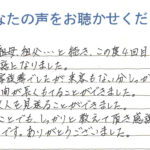 なたの声をお聴かせくだ
祖母、祖父…と続き、この度4回目
話となりました。
家族葬でしたが来客もない分、しっか
時間が長くもてることができました。
人を見送ることができました。
ことでも、しっかりと教えて頂き感謝
です。ありがとうございました。